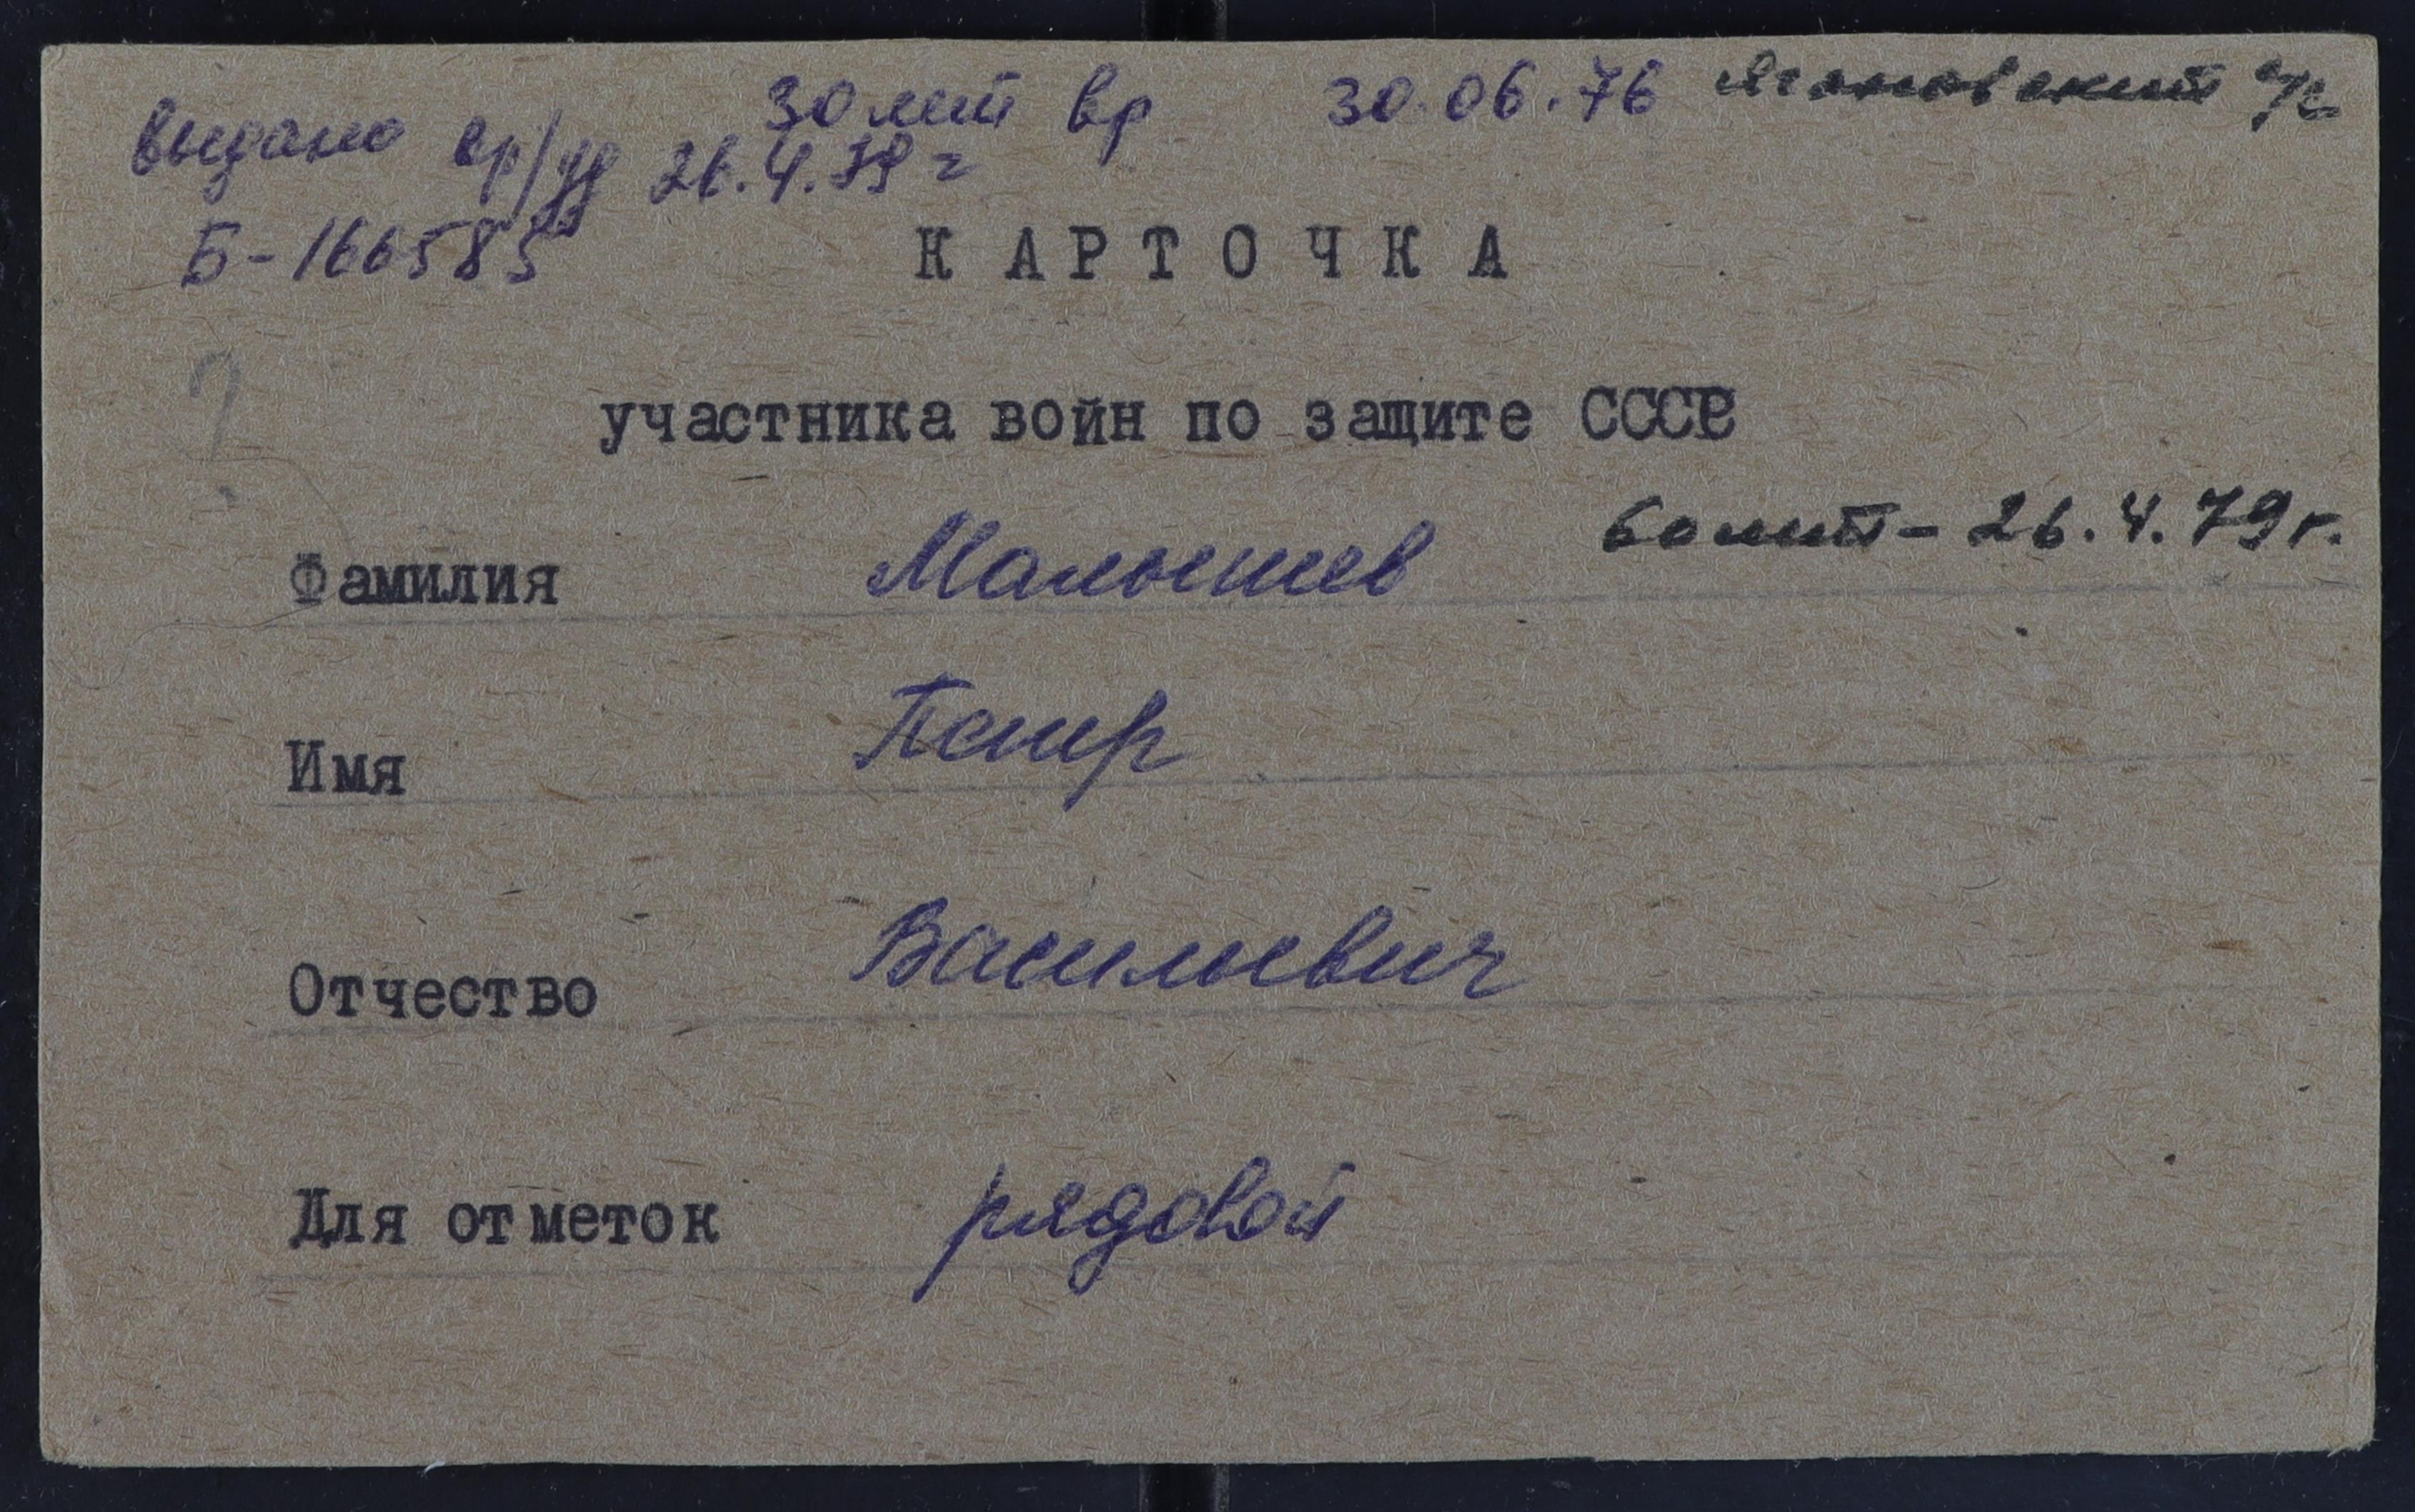 30 лет вр 30.06.76 Ягановский с/с
выдано ер/уд 26.4.79 г
Б-166585
КАРТОЧКА
?
участника войн по защите СССР
60 лет - 26.4.79г.
Фамилия Малышев
Имя Петр
Отчество Васильевич
Для отметок рядовой